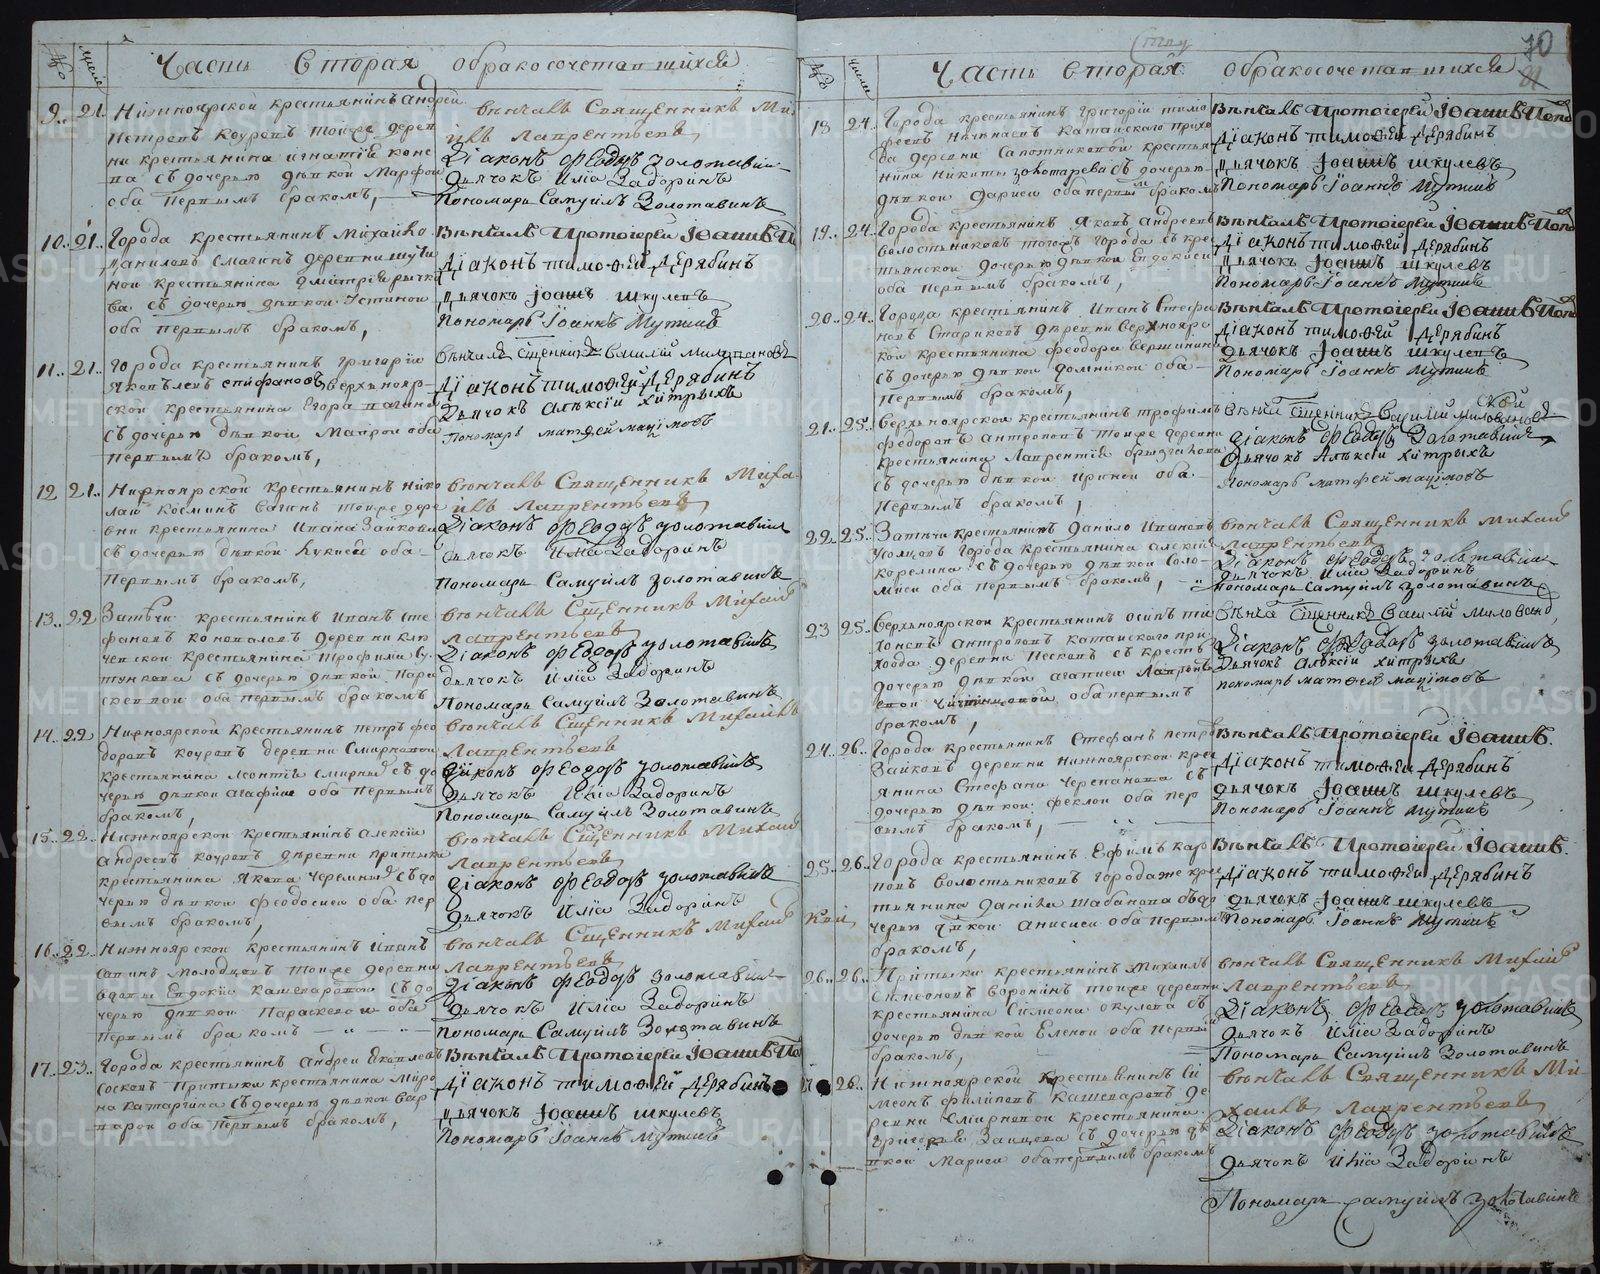 Часть вторая о бракосочетавшихся
№ число
9. 21. Нижноярской крестьянинъ Андрей
Петровъ Коуровъ тойже дерев
ни крестьянина Игнатія
съ дочерью дѣвкой Марфой
оба первымъ бракомъ,
вѣнчалъ Священникъ Миха
илъ Лаврентьевъ
Діаконъ Феодоръ Золотавинъ
Дьячокъ Иліа Задоринъ
Пономарь Самуилъ Золотавинъ
10. 21. Города крестьянинъ Михайло
Даниловъ Смагинъ деревни Шути
ной крестьянина Дмитрія
ва съ дочерью дѣвкой Устиньей
оба первымъ бракомъ,
Вѣнчалъ Протоіерей Іоаннъ По
Діаконъ Тимофей Дерябинъ
Дьячокъ Іоаннъ Шкулевъ
Пономарь Іоаннъ Мутинъ
11. 21. Города крестьянинъ Григорій
Яковлевъ Епифановъ Верхъ­нояр
ской крестьянина Егора
съ дочерью дѣвкой Маврой оба
первымъ бракомъ,
Вѣнчалъ Сщенникъ Василій Миловановъ
Діаконъ Тимофей Дерябинъ
Дьячокъ Алексій Хитрыхъ
Пономарь Матфей Мацімовъ
12 21. Нижноярской крестьянинъ Нико
лай Косминъ Вагинъ тойже дере
вни крестьянина Ивана Зайкова
съ дочерью дѣвкой оба
первымъ бракомъ,
вѣнчалъ Священникъ Миха
илъ Лаврентьевъ
Діаконъ Феодоръ Золотавинъ
Дьячокъ Иліа Задоринъ
Пономарь Самуилъ Золотавинъ
13. 22 Затечи крестьянинъ Иванъ Сте
фановъ Коноваловъ деревни Клю
чевской крестьянина Трофима Су
тункова съ дочерью дѣвкой Пара
скевіей оба первымъ бракомъ
вѣнчалъ Сщенникъ Михаилъ
Лаврентьевъ
Діаконъ Феодоръ Золотавинъ
Дьячокъ Иліа Задоринъ
Пономарь Самуилъ Золотавинъ
14. 22 Нижноярской крестьянинъ Петръ Фео
доровъ Коуровъ деревни Смирновой
крестьянина Леонтія Смирныхъ съ до
черью дѣвкой Агафіей оба первымъ
бракомъ,
вѣнчалъ Сщенникъ Михаилъ
Лаврентьевъ
Діаконъ Феодоръ Золотавинъ
Дьячокъ Иліа Задоринъ
Пономарь Самуилъ Золотавинъ
15. 22. Нижноярской крестьянинъ Алексій
Андреевъ Коуровъ деревни Притыки
крестьянина Якова Черемныхъ съ до
черью дѣвкой Феодосіей оба пер
вымъ бракомъ,
вѣнчалъ Сщенникъ Михаилъ
Лаврентьевъ
Діаконъ Феодоръ Золотавинъ
Дьячокъ Иліа Задоринъ
16. 22. Нижноярской крестьянинъ Иванъ
Савинъ Молодцовъ тойже деревни
вдовы Евдокіи Кашеваровой съ до
черью дѣвкой Параскевой оба
первымъ бракомъ
вѣнчалъ Сщенникъ Михаилъ
Лаврентьевъ
Діаконъ Феодоръ Золотавинъ
Дьячокъ Иліа Задоринъ
Пономарь Самуилъ Золотавинъ
17. 23. Города крестьянинъ Андрей Яковлевъ
Соковъ Притыки крестьянина Миро
на Катаргина съ дочерью дѣвкой Вар
варой оба первымъ бракомъ,
Вѣнчалъ Протоіерей Іоаннъ По
Діаконъ Тимофей Дерябинъ
Дьячокъ Іоаннъ Шкулевъ
Пономарь Іоаннъ Мутинъ
70
Часть вторая о бракосочетавшихся
№ число
18 24. Города крестьянинъ Григорій Тимо
феевъ Катайскаго прихо
да деревни Сапожниковой крестья
нина Никиты съ дочерью
дѣвкой Даріей оба первымъ бракомъ
Вѣнчалъ Протоіерей Іоаннъ Попо
Діаконъ Тимофей Дерябинъ
Дьячокъ Іоаннъ Шкулевъ
Пономарь Іоаннъ Мутинъ
19. 24. Города крестьянинъ Яковъ Андреевъ
Волостниковъ тогожъ города съ кре
стьянской дочерью дѣвкой Евдокіей
оба первымъ бракомъ,
Вѣнчалъ Протоіерей Іоаннъ Попо
Діаконъ Тимофей Дерябинъ
Дьячокъ Іоаннъ Шкулевъ
Пономарь Іоаннъ Мутинъ
20. 24. Города крестьянинъ Иванъ Стефа
новъ Стариковъ деревни Верхнояр
кой крестьянина Феодора Вершинина
съ дочерью дѣвкой Домникой оба
первымъ бракомъ,
Вѣнчалъ Протоіерей Іоаннъ Попо
Діаконъ Тимофей Дерябинъ
Дьячокъ Іоаннъ Шкулевъ
Пономарь Іоаннъ Мутинъ
21. 25. Верхъноярской крестьянинъ Трофимъ
Федоровъ Антроповъ тойже деревни
крестьянина Лаврентія
съ дочерью дѣвкой Ириной оба
первымъ бракомъ,
Вѣнчалъ Сщенникъ Василій Миловановъ
Діаконъ Феодоръ Золотавинъ
Дьячокъ Алексій Хитрыхъ
Пономарь Матфей Мацімовъ
22. 25. Затечи крестьянинъ Данило Ивановъ
Усольцовъ города крестьянина Алексія
Корелина съ дочерью дѣвкой Соло
міей оба первымъ бракомъ,
вѣнчалъ Священникъ Михаилъ
Лаврентьевъ
Діаконъ Феодоръ Золотавинъ
Дьячокъ Иліа Задоринъ
Пономарь Самуилъ Золотавинъ
23 25. Верхъноярской крестьянинъ Осипъ Ти
хоновъ Антроповъ Катайскаго при
хода деревни Песковъ съ крестья
дочерью дѣвкой Агапіей Лаврентье
вой оба первымъ
бракомъ,
Вѣнчалъ Сщенникъ Василій Миловановъ
Діаконъ Феодоръ Золотавинъ
Дьячокъ Алексій Хитрыхъ
Пономарь Матфей Мацімовъ
24. 26. Города крестьянинъ Стефанъ Петровъ
Зайковъ деревни Нижноярской крес
янина Стефана Черепанова съ
дочерью дѣвкой Феклой оба пер
вымъ бракомъ,
Вѣнчалъ Протоіерей Іоаннъ.
Діаконъ Тимофей Дерябинъ
Дьячокъ Іоаннъ Шкулевъ
Пономарь Іоаннъ Мутинъ
25. 26. Города крестьянинъ Ефимъ Кар
повъ Волостниковъ города же кре
стьянина Данила Шабанова съ до
черью дѣвкой Анисіей оба первымъ
бракомъ,
Вѣнчалъ Протоіерей Іоаннъ.
Діаконъ Тимофей Дерябинъ
Дьячокъ Іоаннъ Шкулевъ
Пономарь Іоаннъ Мутинъ
26. 26. Притыки крестьянинъ Михаилъ
Симеоновъ Воронинъ тойже деревни
крестьянина Симеона Окулова съ
дочерью дѣвкой Еленой оба первым
бракомъ,
вѣнчалъ Священникъ Михаилъ
Лаврентьевъ
Діаконъ Феодоръ Золотавинъ
Дьячокъ Иліа Задоринъ
Пономарь Самуилъ Золотавинъ
26. Нижноярской крестьянинъ Си
меонъ Филиповъ Кашеваровъ де
ревни Смирновой крестьянина
Григорія Заицова съ дочерью дѣ
вкой Маріей оба первымъ бракомъ
вѣнчалъ Священникъ Ми
хаилъ Лаврентьевъ
Діаконъ Феодоръ Золотавинъ
Дьячокъ Иліа Задоринъ
Пономарь Самуилъ Золотавинъ
METRIKI.GASO-URAL.RU